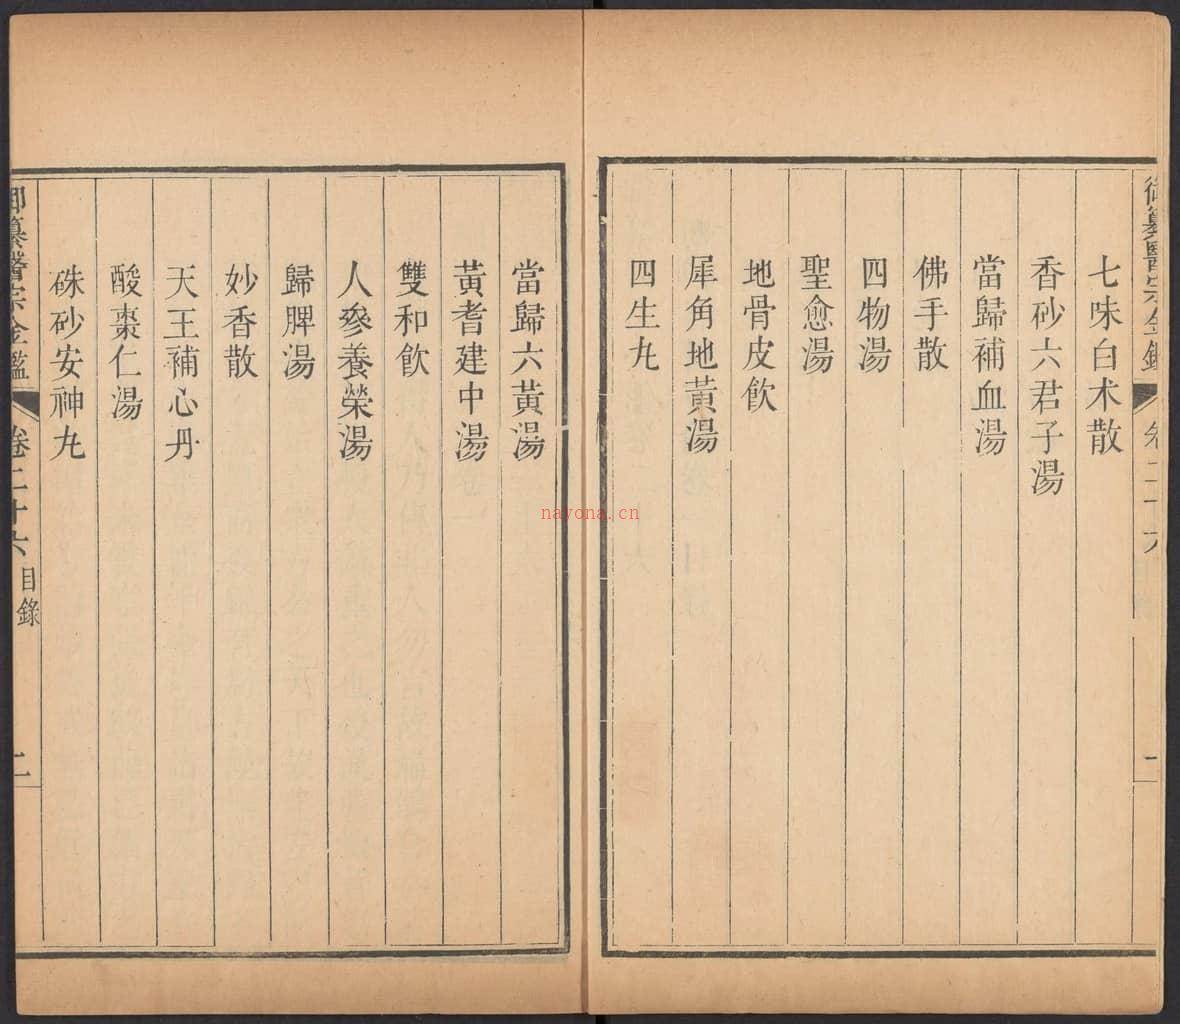 御纂醫宗金鑑 卷二十六 目錄 一
七味白术散
香砂六君子湯
當歸補血湯
佛手散
四物湯
聖愈湯
地骨皮飲
犀角地黃湯
四生丸
當歸六黃湯
黃耆建中湯
雙和飲
人參養榮湯
歸脾湯
妙香散
天王補心丹
酸棗仁湯
硃砂安神丸
御纂醫宗金鑑 卷二十六 目錄 二
nayona.cn